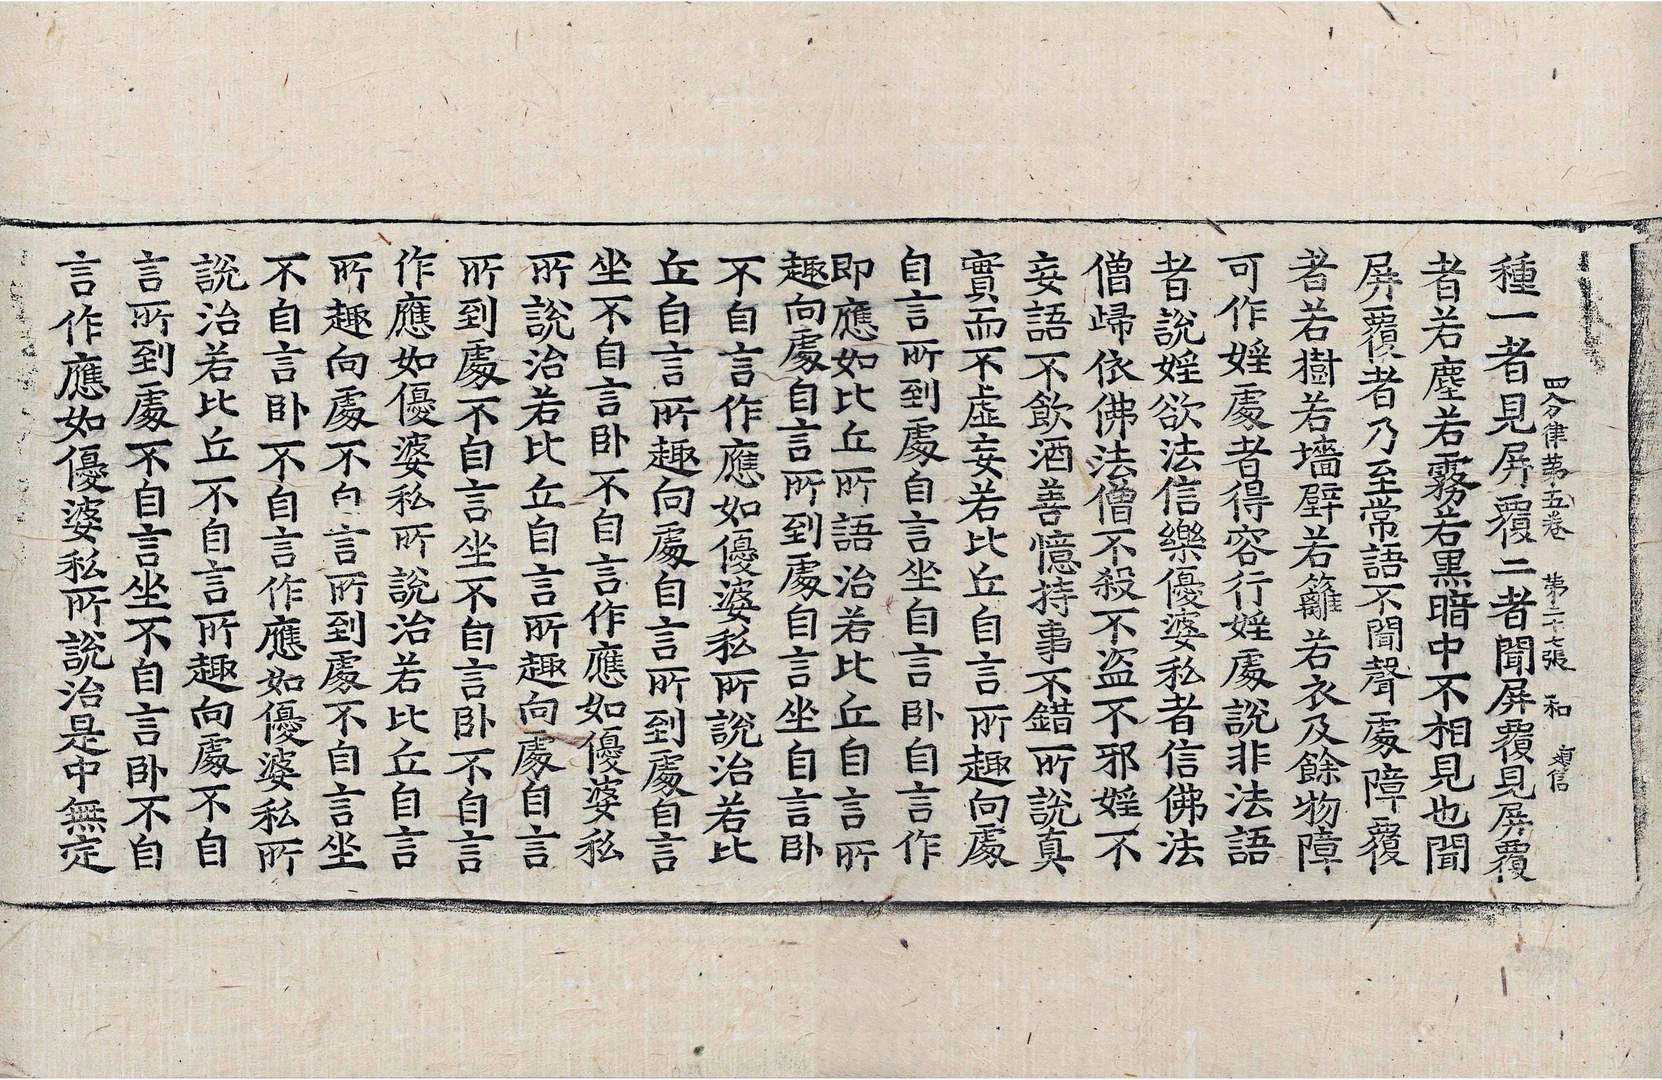 四分律第五卷 第二十七張 和 信
種一者見屏覆二者聞屏覆見屏覆
者若塵若霧若黑暗中不相見也聞
屏覆者乃至常語不聞聲處障覆
者若樹若墻壁若籬若衣及餘物障
可作婬處者得容行婬處說非法語
者說婬欲法信樂優婆私者信佛法
僧歸依佛法僧不殺不盜不邪婬不
妄語不飲酒善憶持事不錯所說真
實而不虛妄若比丘自言所趣向處
自言所到處自言坐自言卧自言作
即應如比丘所語治若比丘自言所
趣向處自言所到處自言坐自言卧
不自言作應如優婆私所說治若比
丘自言所趣向處自言所到處自言
坐不自言卧不自言作應如優婆私
所說治若比丘自言所趣向處自言
所到處不自言坐不自言卧不自言
作應如優婆私所說治若比丘自言
所趣向處不自言所到處不自言坐
不自言卧不自言作應如優婆私所
說治若比丘不自言所趣向處不自
言所到處不自言坐不自言卧不自
言作應如優婆私所說治是中無定